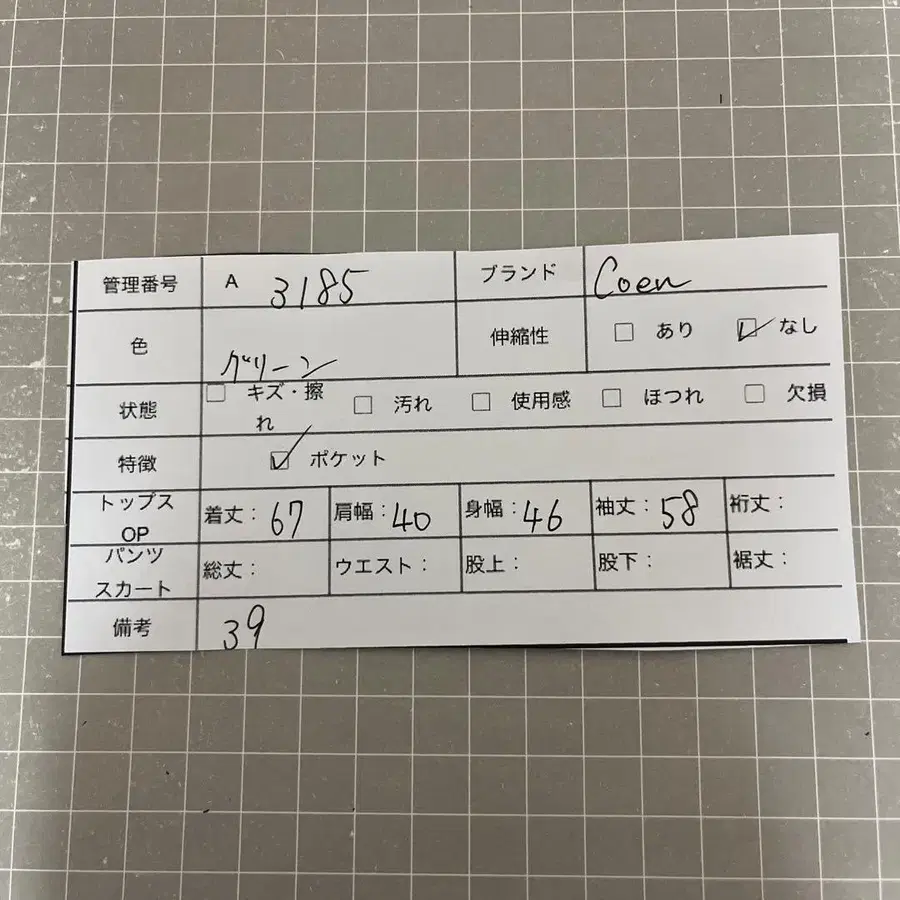 管理番号 A 3185 ブランド Coen
色 グリーン 伸縮性 □ あり ☑ なし
状態 □ キズ・擦れ □ 汚れ □ 使用感 □ ほつれ □ 欠損
特徴 ☑ ポケット
トップス OP 着丈：67 肩幅：40 身幅：46 袖丈：58 裄丈：
パンツ スカート 総丈： ウエスト： 股上： 股下： 裾丈：
備考 39